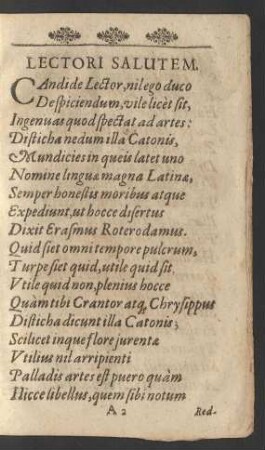 LECTORI SALUTEM.
CAndide Lector, nil ego duco
Despiciendum, vile licèt sit,
Ingenuas quod spectat ad artes:
Disticha nedum illa Catonis,
Mundicies in queis latet uno
Nomine linguæ magna Latinæ,
Semper honestis moribus atque
Expediunt, ut hocce disertus
Dixit Erasmus Roterodamus.
Quid siet omni tempore pulcrum,
Turpe siet quid, utile quid sit,
Vtile quid non, plenius hocce
Quàm tibi Crantor atq, Chrysippus
Disticha dicunt illa Catonis;
Scilicet inque flore jurentæ
Vtilius nil arripienti
Palladis artes est puero quàm
Hicce libellus, quem sibi notum
A 2 Red-